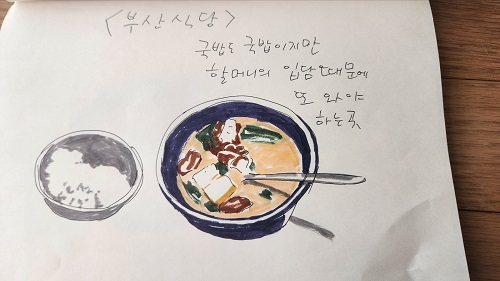 <부산식당>
국밥도 국밥이지만
할머니의 입담 때문에
또 와야
하는 곳